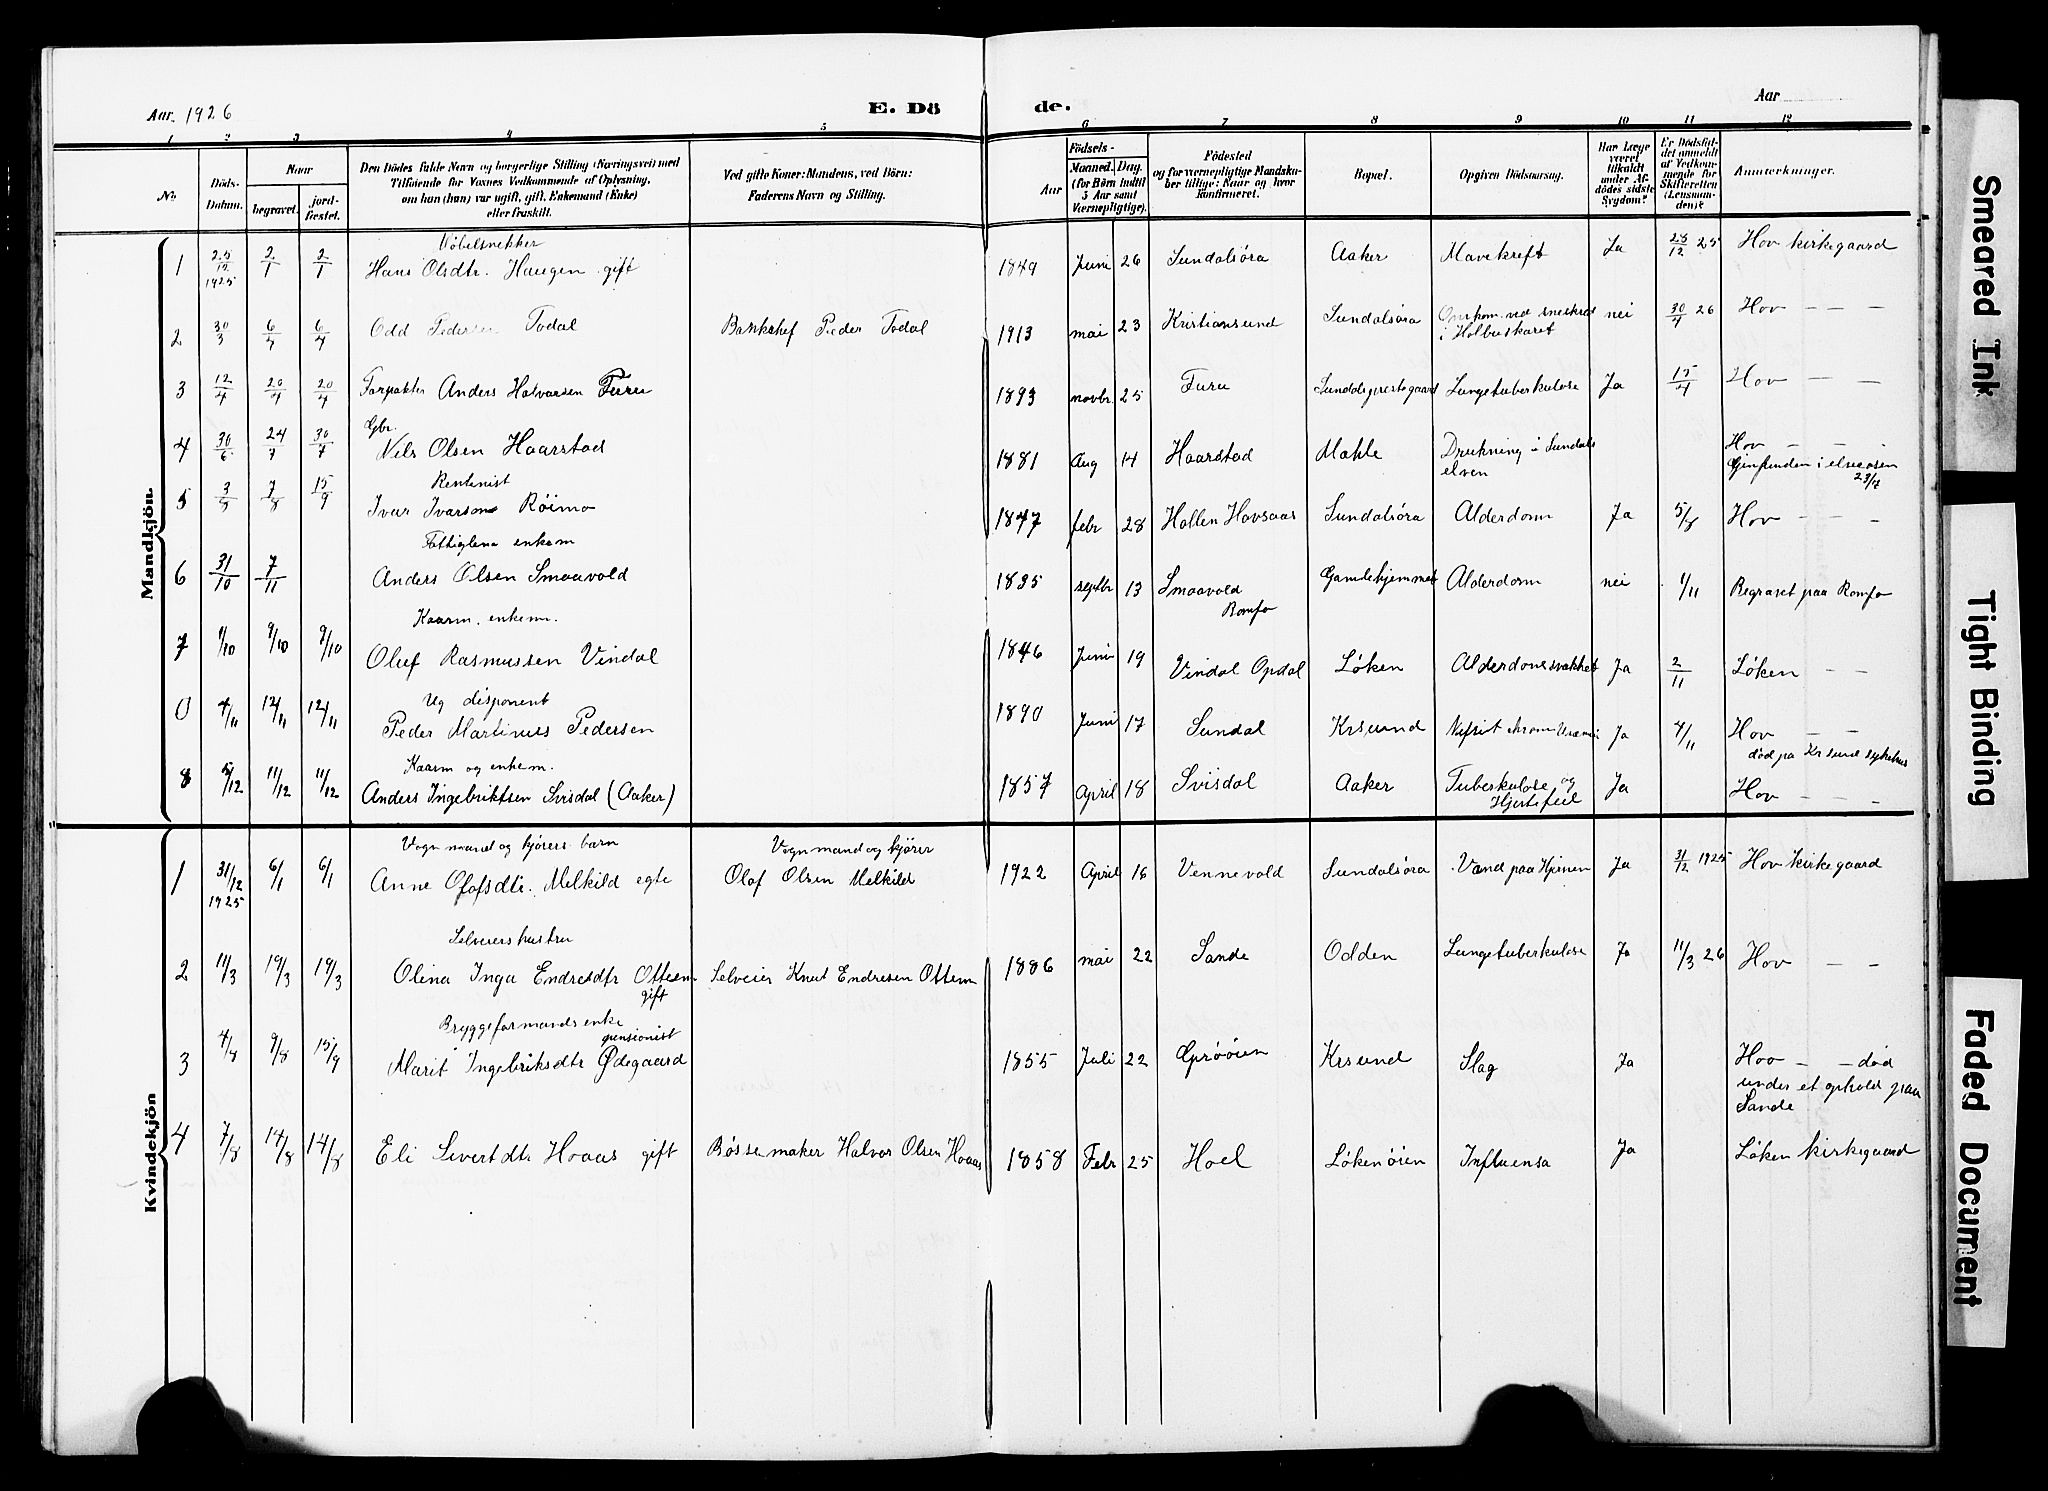 Aar 1926
E. Dö de.
Aar
1 2 3 4 5 6 7 8 9 10 11 12
No.
Döds-Datum.
Naar
begravet.
jord-fæstet.
Den Dödes fulde Navn og borgerlige Stilling (Næringsvei) med
Tilföiende for Voxnes Vedkommende af Oplysning,
om han (hun) var ugift, gift, Enkemand (Enke)
eller fraskilt.
Ved gifte Koner: Mandens, ved Börn:
Faderens Navn og Stilling.
Födsels-
Aar
Maaned. Dag.
(for Börn indtil
5 Aar samt
Værnepligtige).
Födested
og for værnepligtige Mandsku-
ber tillige: Naar og hvor
konfirmeret.
Bopæl.
Opgiven Dödsaarsag.
Har Læge
været
tilkaldt
under Af-
dödes sidste
Sygdom?
Er Dödsfal-
det anmeldt
af Vedkom-
mende for
Skifteretten
(Lensman-
den)?
Anmærkninger.
Mandkjön.
Møbelsnekker
1 25/12 1925 2/1 2/1 Hans Olsdtr. Haugen gift 1849 Juni 26 Sundalsøra Aaker Mavekreft Ja 28/12 25 Hov kirkegaard
2 30/3 6/4 6/4 Odd Pedersen Todal Bankchef Peder Todal 1913 mai 23 Kristiansund Sundalsøra Omkom. ved sneskred nei 30/4 26 Hov — —
i Holbuskaret
3 12/4 20/4 20/4 Forpakter Anders Halvorsen Furu 1893 novbr. 25 Furu Sundalsprestegaard Lungetuberkulose Ja 15/4 Hov — —
Gbr.
4 30/6 24/7 30/7 Nils Olsen Haarstad 1881 Aug 14 Haarstad Mahle Drukning i Sundals Hov — — -
elven Gjenfunden i elveosen
23/7
Rentenist
5 3/8 7/8 15/9 Ivar Ivarson Røimo 1847 febr 28 Hollen Hovsaas Sundalsøra Alderdom Ja 5/8 Hov — —
Fattiglem enkem
6 31/10 7/11 Anders Olsen Smaavold 1835 septbr 13 Smaavold Gamlehjemmet Alderdom nei 1/11 Begravet paa Romfo
Romfo
Kaarm. enkem.
7 1/10 9/10 9/10 Oluf Rasmussen Vindal 1846 Juni 19 Vindal Opdal Løken Alderdomssvakhet Ja 2/11 Løken — —
Ug disponent
0 4/11 12/11 12/11 Peder Martinus Pedersen 1890 Juni 17 Sundal Krsund Nefrit chron Uræmi Ja 4/11 Hov — —
død pa Kr sund sykehus
Kaarm og enkem.
8 5/12 11/12 11/12 Anders Ingebriktsen Svisdal (Aaker) 1857 April 18 Svisdal Aaker Tuberkulose og Ja Hov — — -
Hjertefeil
Kvindekjön
Vogn mand og kjørers barn Vognmand og kjører
1 31/12 1925 6/1 6/1 Anne Olofsdtr. Melkild egte Olaf Olsen Melkild 1922 April 16 Vennevold Sundalsøra Vand paa Hjernen Ja 31/12 1925 Hov kirkegaard
Selveiers hustru
2 11/3 19/3 19/3 Olina Inga Endresdtr Ottem Selveier Knut Endresen Ottem 1886 mai 22 Sande Odden Lungetuberkulose Ja 11/3 26 Hov — —
gift
Bryggeformands enke
pensionist
3 4/8 9/8 15/9 Marit Ingebriksdtr Ødegaard 1855 Juli 22 Grøøien Krsund Slag Ja Hov — — død
under et ophold paa
Sande
4 7/8 14/8 14/8 Eli Sivertdtr Hoaas gift Bøssemaker Halvor Olsen Hoaas 1858 Febr 25 Hoel Løkenøien Influensa Ja Løken kirkegaard
Smeared Ink
Tight Binding
Faded Document